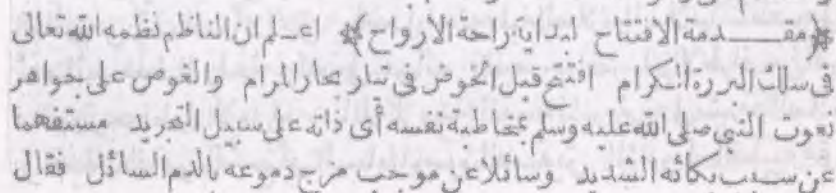 ﴿مقـــدمة الافتتاح لبداية راحة الارواح﴾ اعـلم ان الناظم نظمه الله تعالى
فى سلك البررة الكرام افتتح قبل الخوض فى تيار بحار المرام والغوص على جواهر
نعوت النبى صلى الله عليه وسلم بمخاطبة نفسه أى ذاته على سبيل التجريد مستفهما
عن سبب بكائه الشديد وسائلا عن موجب مزج دموعه بالدم السائل فقال